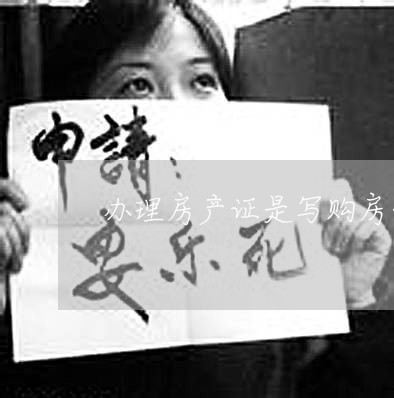 申請：
办理房产证是写购房
安乐死